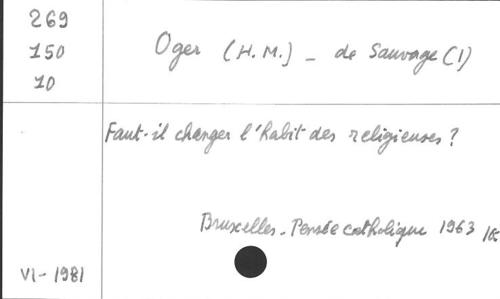 269
150
10
Oger (H.M.) - de Sauvage (I)
Faut-il changer l'habit des religieuses ?
Bruxelles - Pensée catholique 1963
VI - 1981